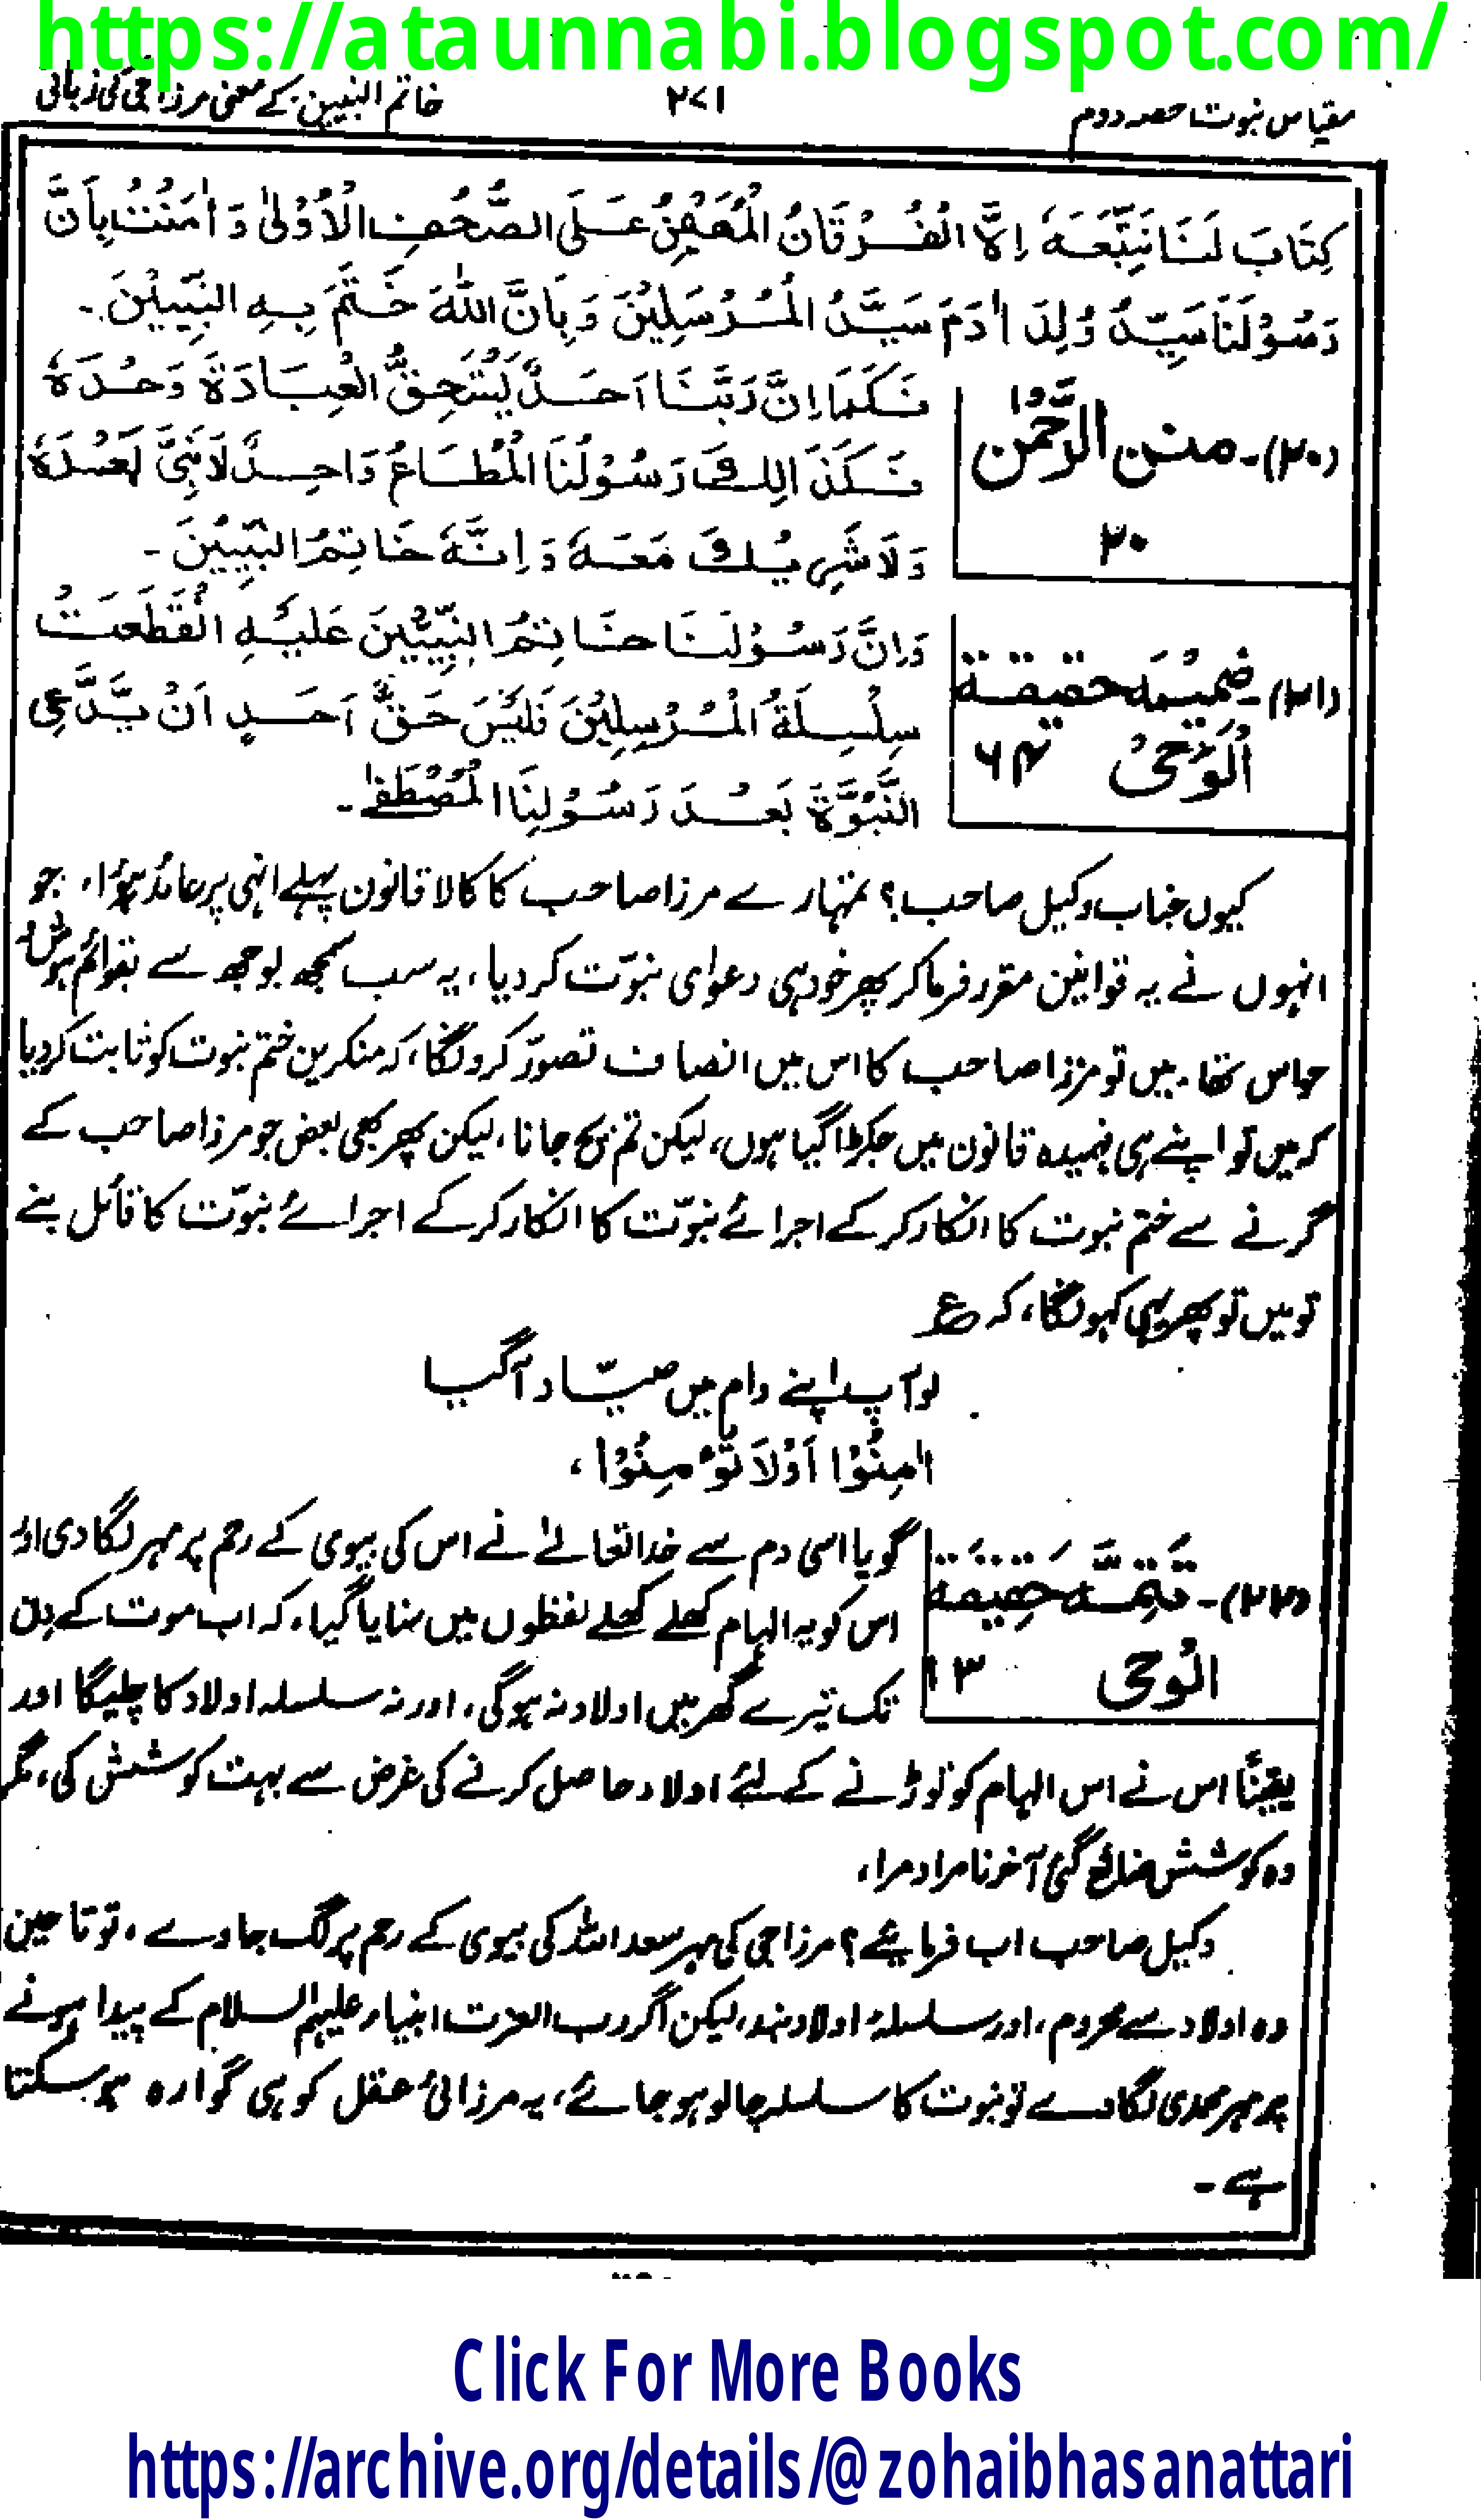 https://ataunnabi.blogspot.com/
مقیاس نبوت حصہ دوم
۲۷۱
خاتم النبیین کے معنی مرزا جی کی زبانی
كِتَابَ لَنَا نَتَّبِعَهٗ اِلَّا الْفُرْقَانُ الْمُهَيْمِنُ عَلَى الصُّحُفِ الْاُوْلٰى وَ اٰمَنْتُ بِاَنَّ
رَسُوْلَنَا سَيِّدُ وُلِدَ اٰدَمَ سَيِّدُ الْمُرْسَلِيْنَ وَبِاَنَّ اللّٰهَ خَتَمَ بِهِ النَّبِيِّيْنَ۔
(۲۰)۔ منن الرَّحْمٰن
۲۰
فَكَمَا اِنَّ رَبَّنَا اَحَدٌ يَسْتَحِقُّ الْعِبَادَةَ وَحْدَهٗ
فَكَذَالِكَ رَسُوْلُنَا الْمُطَاعُ وَاحِدٌ لَا نَبِيَّ بَعْدَهٗ
وَلَا شَرِيْكَ مَعَهٗ وَ اِنَّهٗ خَاتِمُ النَّبِيِّيْنَ۔
(۲۱)۔ ضمیمہ حقیقۃ
الوحی ۶۴
وَاِنَّ رَسُوْلَنَا خَاتِمُ النَّبِيِّيْنَ عَلَيْهِ انْقَطَعَتْ
سِلْسِلَةُ الْمُرْسِلِيْنَ فَلَيْسَ حَقُّ اَحَدٍ اَنْ يَّدَّعِي
النُّبُوَّةَ بَعْدَ رَسُوْلِنَا الْمُصْطَفٰى۔
کیوں جناب وکیل صاحب؟ تمہارے مرزا صاحب کا کالا قانون پہلے انہی پر عائد ہؤا، جو
انہوں نے یہ قوانین مقرر فرما کر پھر خود ہی دعوای نبوّت کر دیا، یہ سب سمجھ بوجھ سے بقوائم ہوش و
حواس تھا، میں تو مرزا صاحب کا اس میں انصاف تصوّر کرونگا، کہ منکرین ختم نبوت کو ثابت کر دیا
کہ میں تو اپنے ہی فہمیدہ قانون میں جکڑا گیا ہوں، لیکن تم بچ جانا، لیکن پھر بھی بعض جو مرزا صاحب کے
گرنے سے ختم نبوت کا انکار کر کے اجرائے نبوّت کا انکار کر کے اجرائے نبوّت کا قائل بنے
تو میں تو پھر یہی کہونگا، کہ ع
لو آپ اپنے دام میں صیّاد آگیا
اٰمِنُوْا اَوْلَا تُؤْمِنُوْا،
(۲۲)۔ تَتِمَّہ حَقِیقَۃ
الوحی ۱۳
گویا اسی دم سے خدا تعالےٰ نے اس کی بیوی کے رحم پر مہر لگا دی اور
اس کو یہ الہام کھلے کھلے لفظوں میں سنایا گیا، کہ اب موت کے دِن
تک تیرے گھر میں اولاد نہ ہوگی، اور نہ سلسلہ اولاد کا چلیگا اور
یقیناً اس نے اس الہام کو توڑنے کے لئے اولاد حاصل کرنے کی غرض سے بہت کوشش کی، مگر
وہ کوشش ضائع گئی آخر نامراد مرا،
وکیل صاحب اب فرمایئے؟ مرزا جی کی مہر سعد اللہ کی بیوی کے رحم پر لگ جاوے، تو تا حین
وہ اولاد سے محروم، اور سلسلۂ اولاد بند، لیکن اگر رب العزت انبیاء علیہم السلام کے پیدا ہونے
پر مہر محمدی لگا دے تو نبوت کا سلسلہ چالو ہو جائے، یہ مرزائی عقل کو ہی گوارہ ہو سکتا
ہے۔
Click For More Books
https://archive.org/details/@zohaibhasanattari